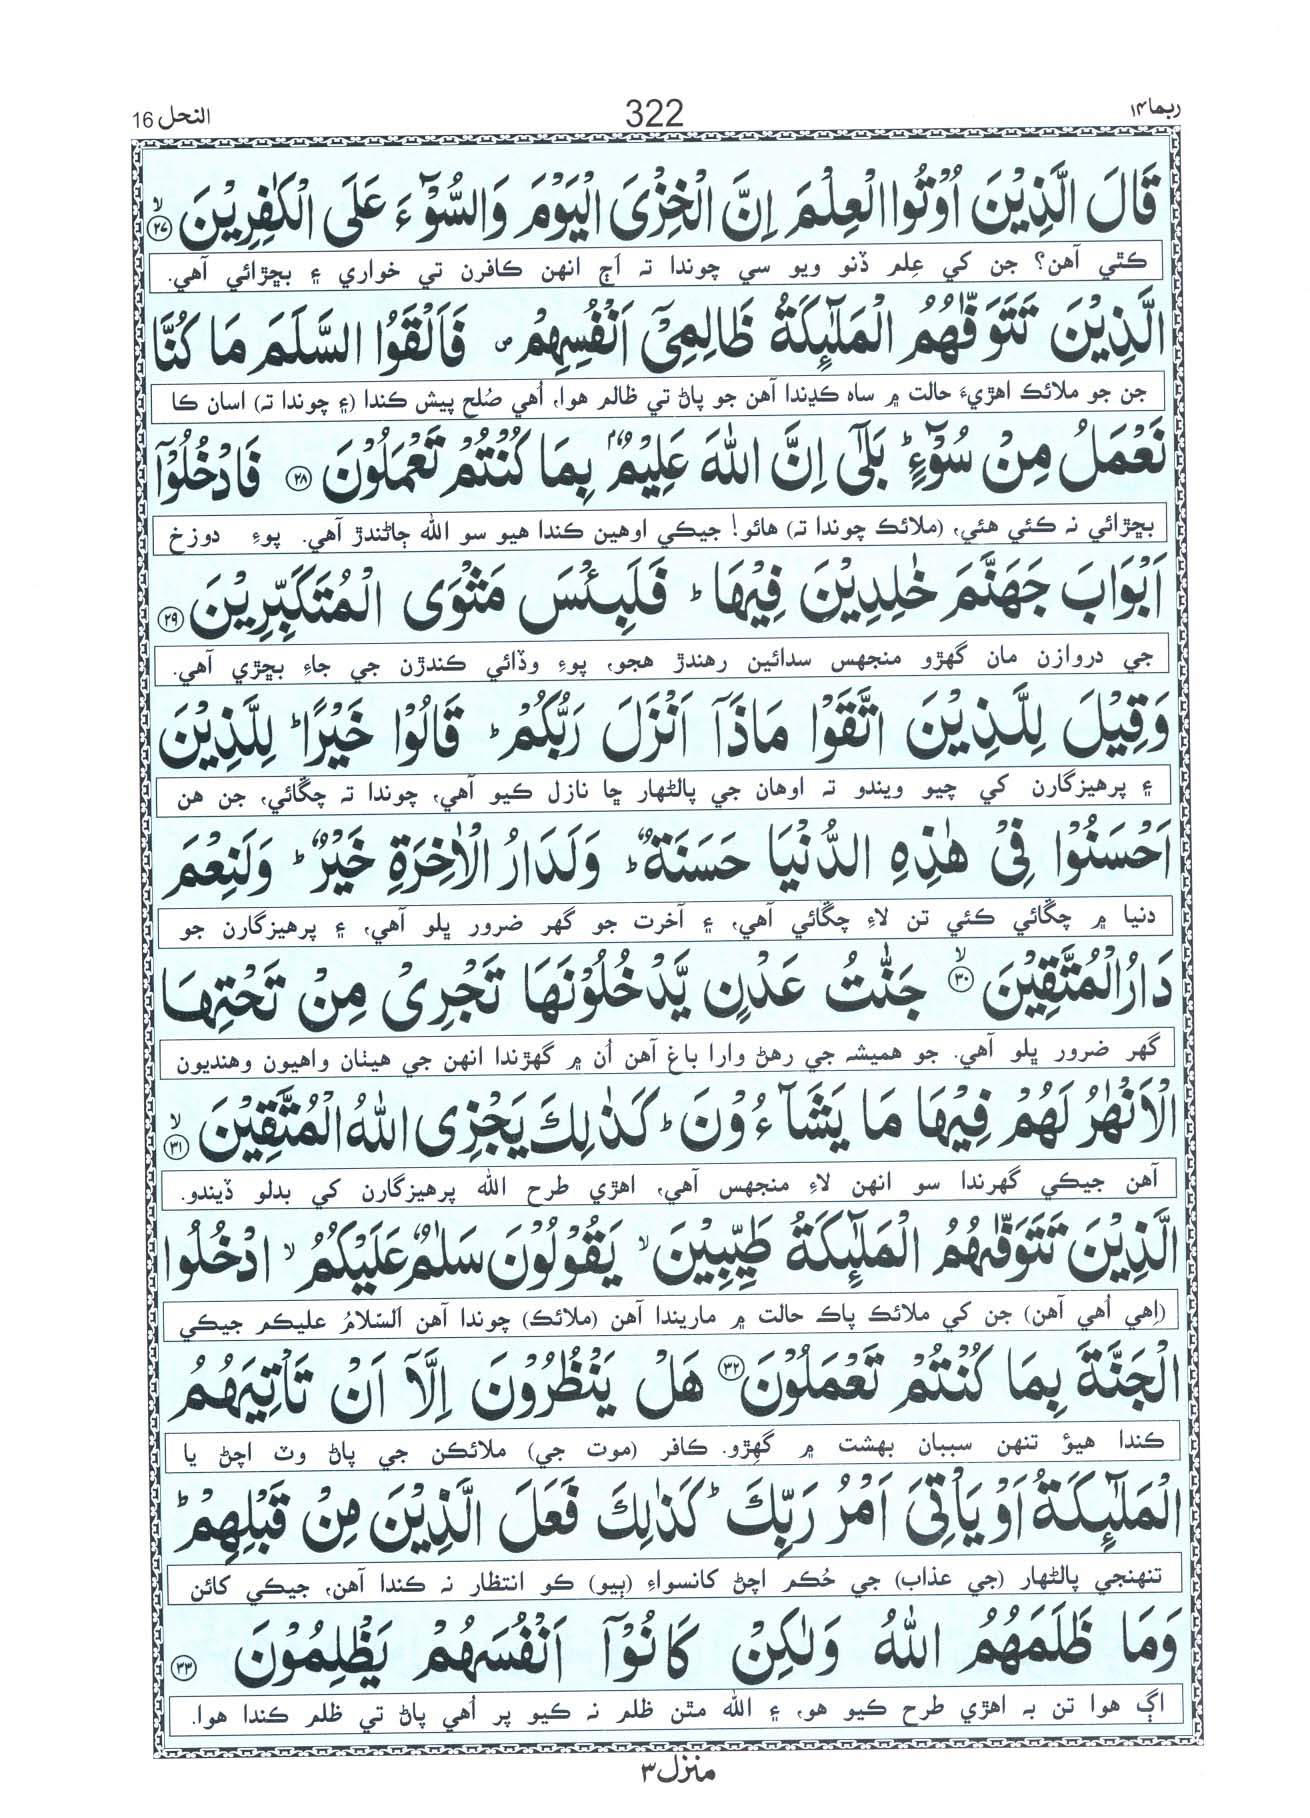 ربما ۱۴
322
النحل 16
قَالَ الَّذِیْنَ اُوْتُوا الْعِلْمَ اِنَّ الْخِزْیَ الْیَوْمَ وَالسُّوْٓءَ عَلَی الْكٰفِرِیْنَ ۙ﴿۲۷﴾
ڪٿي آهن؟ جن کي عِلم ڏنو ويو سي چوندا ته اَڄ انهن ڪافرن تي خواري ۽ بڇڙائي آهي.
الَّذِیْنَ تَتَوَفّٰىهُمُ الْمَلٰٓئِكَةُ ظَالِمِیْۤ اَنْفُسِهِمْ ۪ فَاَلْقَوُا السَّلَمَ مَا كُنَّا
جن جو ملائڪ اهڙيءَ حالت ۾ ساهه ڪڍندا آهن جو پاڻ تي ظالم هوا، اُهي صُلح پيش ڪندا (۽ چوندا ته) اسان ڪا
نَعْمَلُ مِنْ سُوْٓءٍ ؕ بَلٰۤی اِنَّ اللّٰهَ عَلِیْمٌۢ بِمَا كُنْتُمْ تَعْمَلُوْنَ ﴿۲۸﴾ فَادْخُلُوْۤا
بڇڙائي نه ڪئي هئي، (ملائڪ چوندا ته) هائو! جيڪي اوهين ڪندا هيو سو الله ڄاڻندڙ آهي. پوءِ دوزخ
اَبْوَابَ جَهَنَّمَ خٰلِدِیْنَ فِیْهَا ؕ فَلَبِئْسَ مَثْوَی الْمُتَكَبِّرِیْنَ ﴿۲۹﴾
جي دروازن مان گهڙو منجهس سدائين رهندڙ هجو، پوءِ وڏائي ڪندڙن جي جاءِ بڇڙي آهي.
وَقِیْلَ لِلَّذِیْنَ اتَّقَوْا مَاذَاۤ اَنْزَلَ رَبُّكُمْ ؕ قَالُوْا خَیْرًا ؕ لِلَّذِیْنَ
۽ پرهيزگارن کي چيو ويندو ته اوهان جي پالڻهار ڇا نازل ڪيو آهي، چوندا ته چڱائي، جن هن
اَحْسَنُوْا فِیْ هٰذِهِ الدُّنْیَا حَسَنَةٌ ؕ وَلَدَارُ الْاٰخِرَةِ خَیْرٌ ؕ وَلَنِعْمَ
دنيا ۾ چڱائي ڪئي تن لاءِ چڱائي آهي، ۽ آخرت جو گهر ضرور ڀلو آهي، ۽ پرهيزگارن جو
دَارُ الْمُتَّقِیْنَ ۙ﴿۳۰﴾ جَنّٰتُ عَدْنٍ یَّدْخُلُوْنَهَا تَجْرِیْ مِنْ تَحْتِهَا
گهر ضرور ڀلو آهي. جو هميشه جي رهڻ وارا باغ آهن اُن ۾ گهڙندا انهن جي هيٺان واهيون وهنديون
الْاَنْهٰرُ لَهُمْ فِیْهَا مَا یَشَآءُوْنَ ؕ كَذٰلِكَ یَجْزِی اللّٰهُ الْمُتَّقِیْنَ ۙ﴿۳۱﴾
آهن جيڪي گهرندا سو انهن لاءِ منجهس آهي، اهڙي طرح الله پرهيزگارن کي بدلو ڏيندو.
الَّذِیْنَ تَتَوَفّٰىهُمُ الْمَلٰٓئِكَةُ طَیِّبِیْنَ ۙ یَقُوْلُوْنَ سَلٰمٌ عَلَیْكُمُ ۙ ادْخُلُوا
(اِهي اُهي آهن) جن کي ملائڪ پاڪ حالت ۾ ماريندا آهن (ملائڪ) چوندا آهن اَلسّلامُ عليڪم جيڪي
الْجَنَّةَ بِمَا كُنْتُمْ تَعْمَلُوْنَ ﴿۳۲﴾ هَلْ یَنْظُرُوْنَ اِلَّاۤ اَنْ تَاْتِیَهُمُ
ڪندا هيؤ تنهن سببان بهشت ۾ گهِڙو. ڪافر (موت جي) ملائڪن جي پاڻ وٽ اچڻ يا
الْمَلٰٓئِكَةُ اَوْ یَاْتِیَ اَمْرُ رَبِّكَ ؕ كَذٰلِكَ فَعَلَ الَّذِیْنَ مِنْ قَبْلِهِمْ ؕ
تنهنجي پالڻهار (جي عذاب) جي حُڪم اچڻ کانسواءِ (ٻيو) ڪو انتظار نه ڪندا آهن، جيڪي کائن
وَمَا ظَلَمَهُمُ اللّٰهُ وَلٰكِنْ كَانُوْۤا اَنْفُسَهُمْ یَظْلِمُوْنَ ﴿۳۳﴾
اڳ هوا تن به اهڙي طرح ڪيو هو، ۽ الله مٿن ظلم نه ڪيو پر اُهي پاڻ تي ظلم ڪندا هوا.
منزل ۳